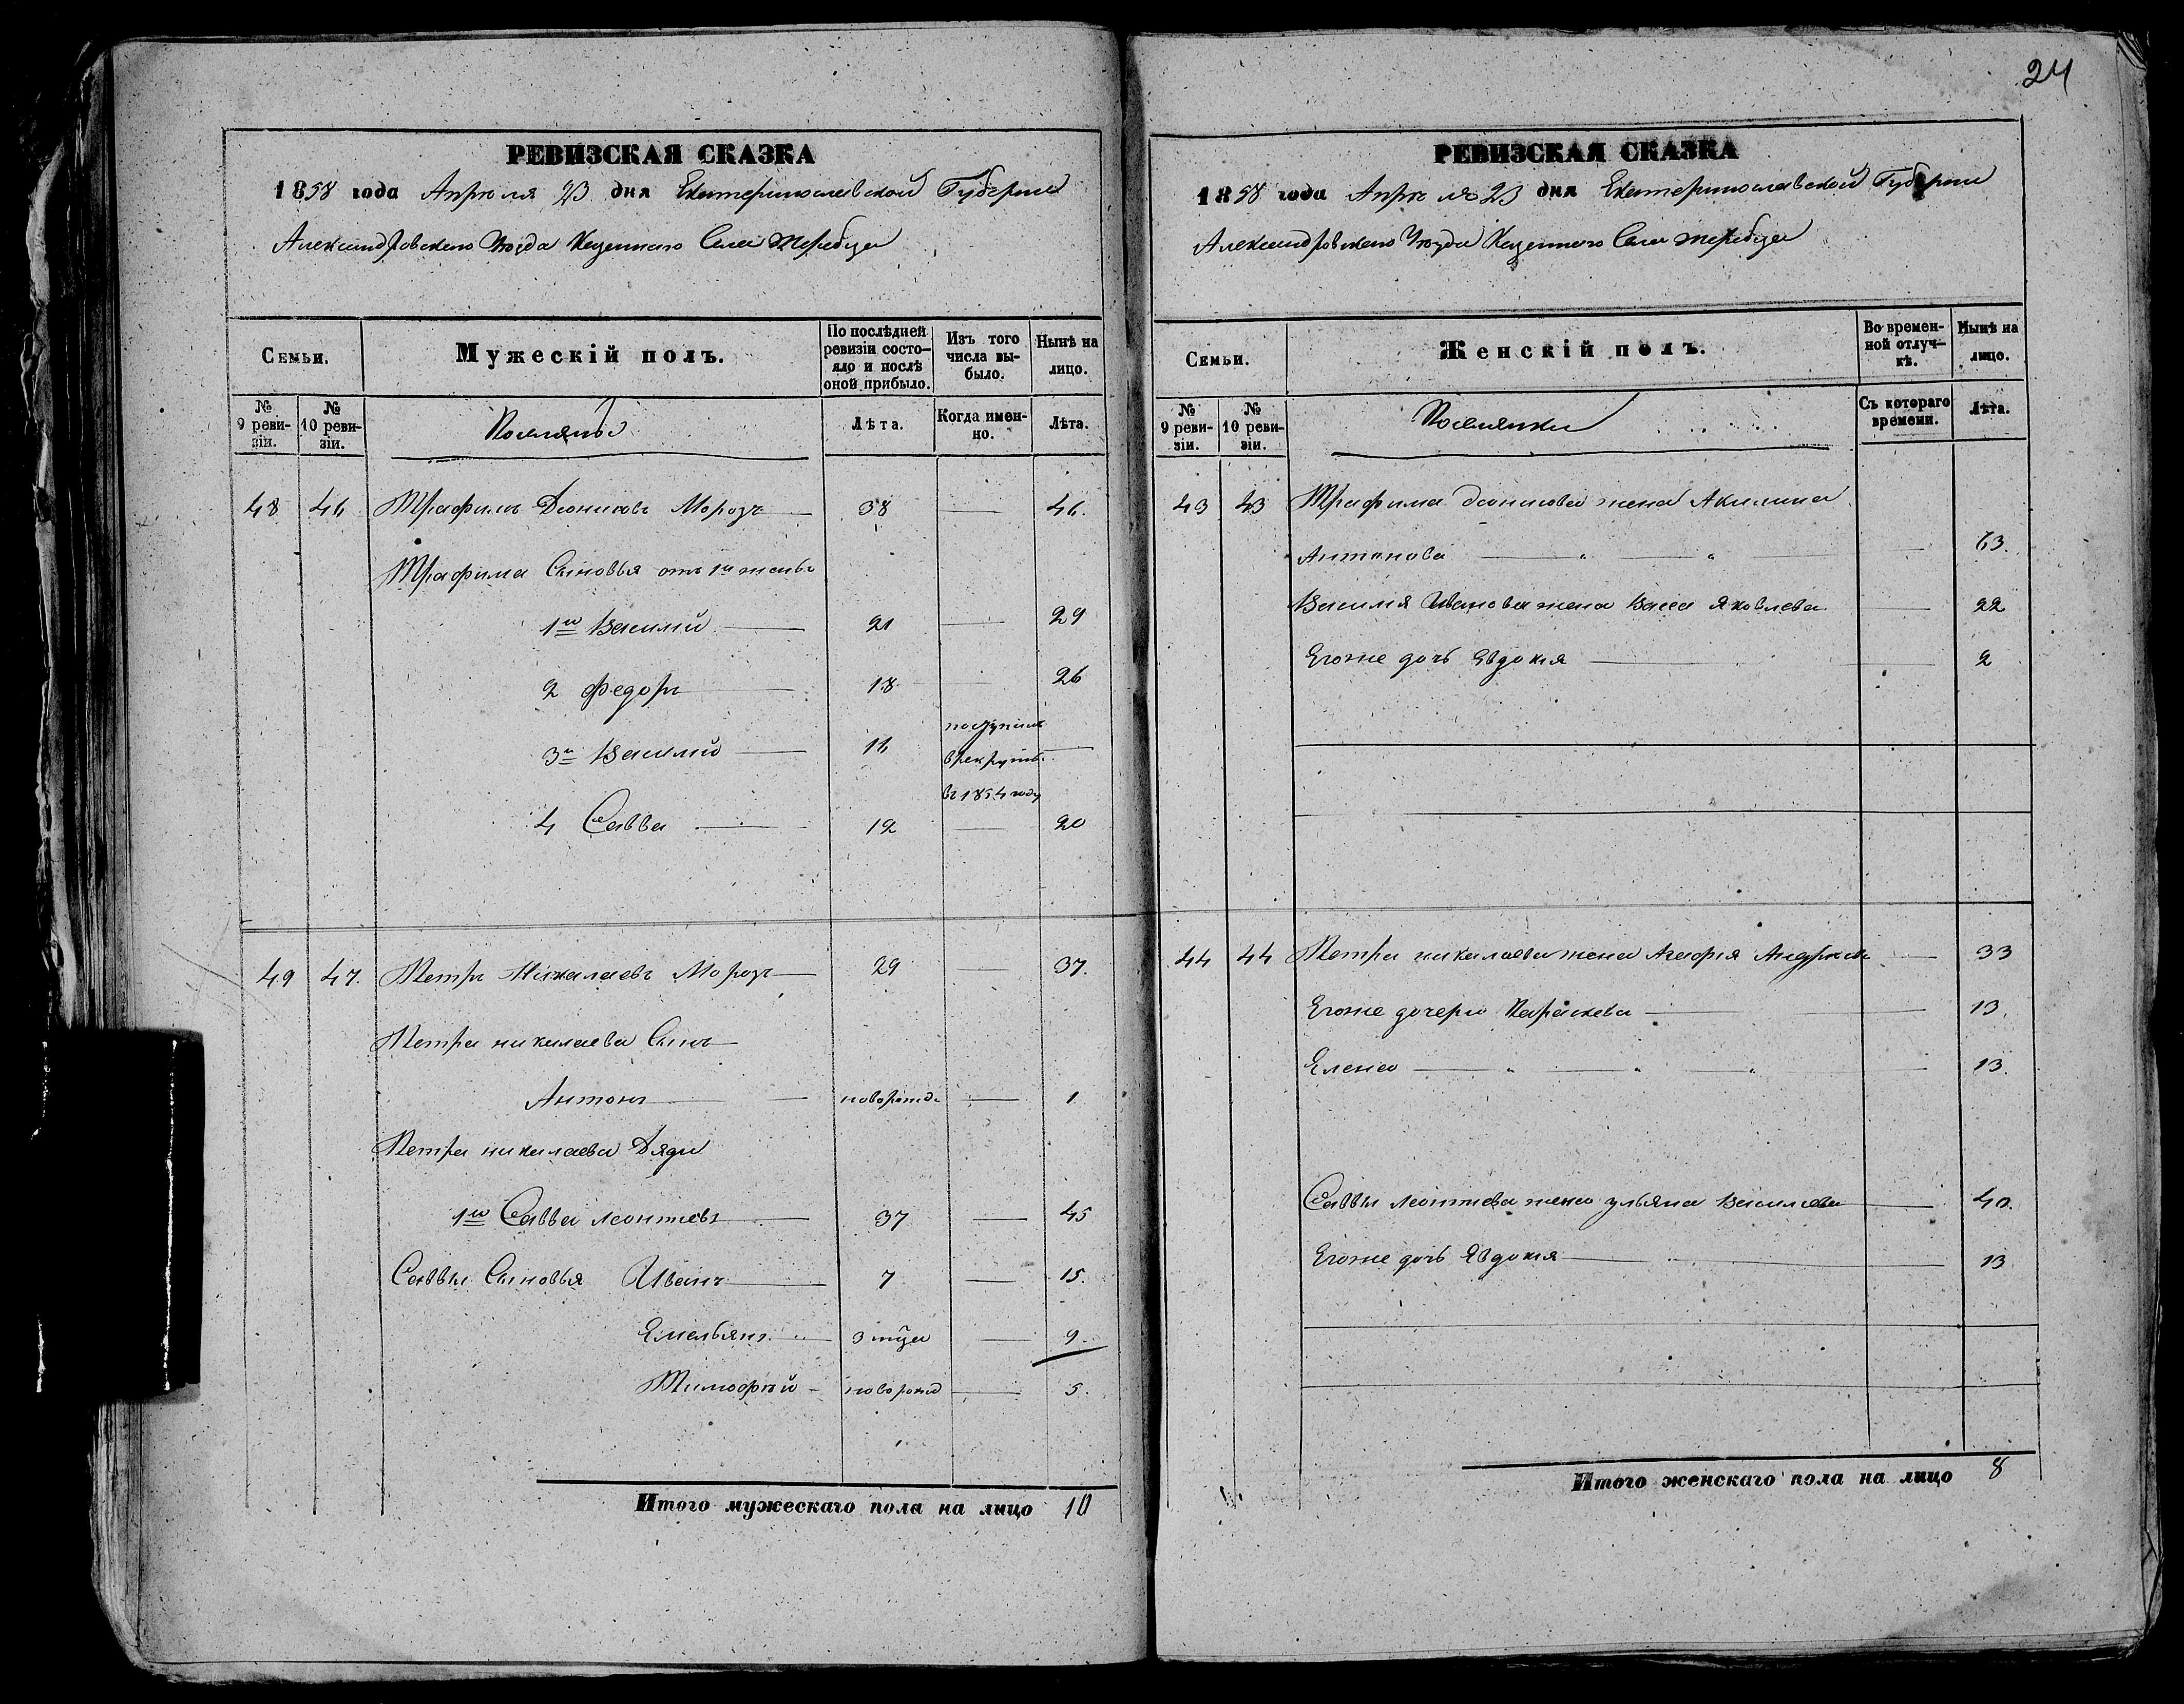 РЕВИЗСКАЯ СКАЗКА
1858 года Апреля 23 дня Екатеринославской Губернии
Александровского Уезда Казенного Села Жеребца
Семьи.
Мужескій полъ.
По послѣдней ревизіи состояло и послѣ оной прибыло.
Изъ того числа выбыло.
Нынѣ на лицо.
№ 9 ревизіи.
№ 10 ревизіи.
Поселяны
Лѣта.
Когда именно.
Лѣта.
48 46 Трафимъ Дионисовъ Морозъ 38 — 46.
Трафима Сыновья отъ 1й жены
1й Василий 21 — 29
2 Федоръ 18 — 26
3й Василий 16 поступилъ в рекруты въ 1854 году —
4 Савва 12 — 20
49 47. Петръ Николаевъ Морозъ 29 — 37.
Петра николаева Сынъ
Антонъ новорожд. — 1
Петра николаева Дяди
1й Савва Леонтиевъ 37 — 45
Саввы Сыновья Иванъ 7 — 15.
Емельянъ 3 мца — 9.
Тимофей новорожд — 5.
Итого мужескаго пола на лицо 10
24
РЕВИЗСКАЯ СКАЗКА
1858 года Апреля 23 дня Екатеринославской Губернии
Александровского Уезда Казенного Села Жеребца
Семьи.
Женскій полъ.
Во временной отлучкѣ.
Нынѣ на лицо.
№ 9 ревизіи.
№ 10 ревизіи.
Поселянки
Съ котораго времени.
Лѣта.
43 43 Трафима дионисова жена Акилина
Антонова — 63.
Василия Иванова жена Васса Яковлева — 22
Егоже дочь Евдокия 2
44 44 Петра николаева жена Агафия Андреева — 33
Егоже дочери Параскева 13.
Елена 13.
Саввы Леонтиева жена ульяна Василиева 40.
Егоже дочь Явдокия 13
Итого женскаго пола на лицо 8